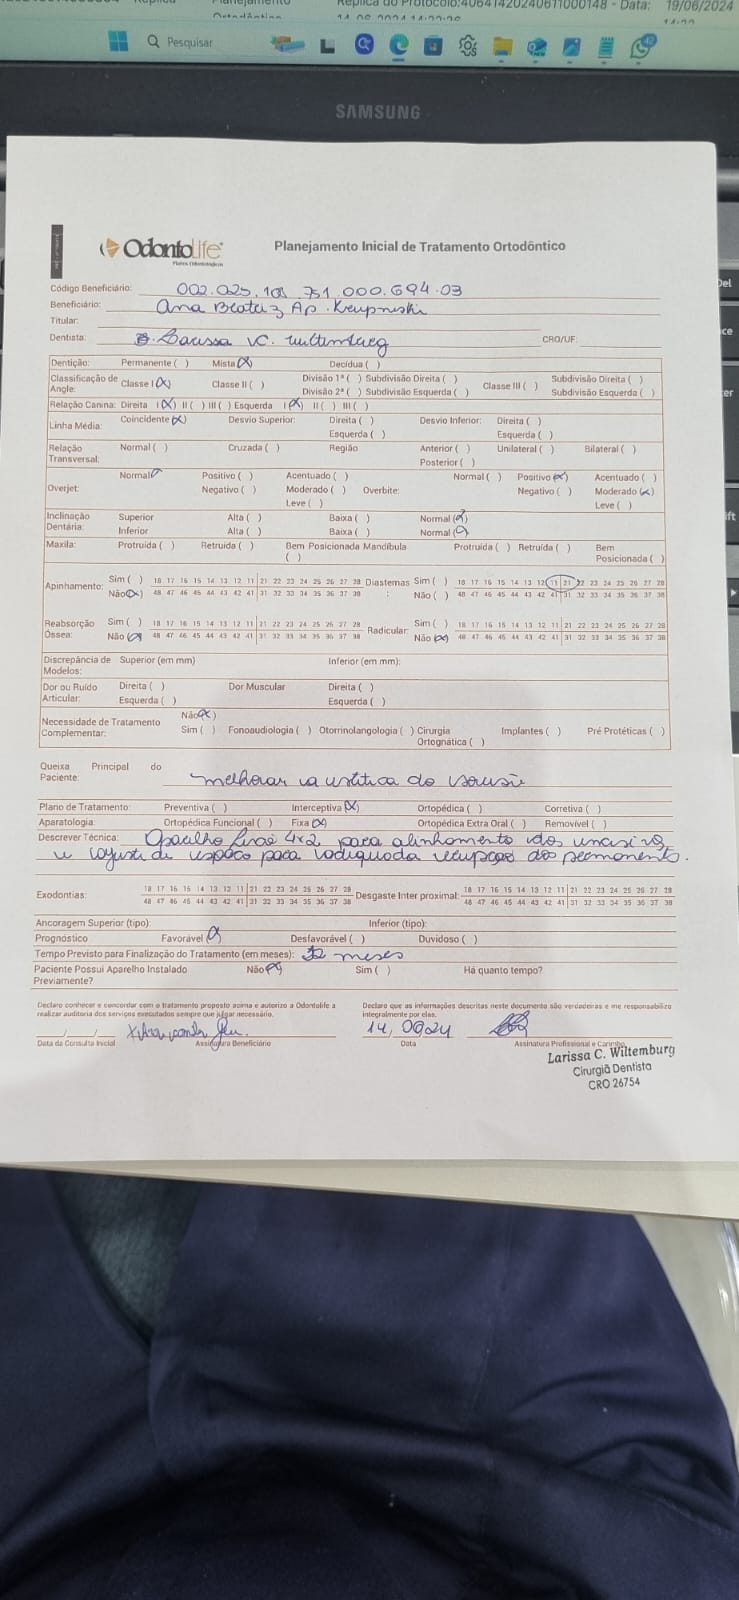 Réplica do Protocolo:40641420240611000148 - Data: 19/06/2024
Pesquisar
SAMSUNG
OdontoLife
Planos Odontológicos
Planejamento Inicial de Tratamento Ortodôntico
Código Beneficiário: 002.025.108.751.000.694.03
Beneficiário: Ana Beatriz Ap. Krupniski
Titular:
Dentista: Larissa C. Wiltemburg CRO/UF:
Dentição: Permanente ( ) Mista (x) Decídua ( )
Classificação de Angle: Classe I (x) Classe II ( ) Divisão 1ª ( ) Subdivisão Direita ( ) Classe III ( ) Subdivisão Direita ( )
Divisão 2ª ( ) Subdivisão Esquerda ( ) Subdivisão Esquerda ( )
Relação Canina: Direita I (x) II ( ) III ( ) Esquerda I (x) II ( ) III ( )
Linha Média: Coincidente (x) Desvio Superior: Direita ( ) Desvio Inferior: Direita ( )
Esquerda ( ) Esquerda ( )
Relação Transversal: Normal ( ) Cruzada ( ) Região Anterior ( ) Unilateral ( ) Bilateral ( )
Posterior ( )
Overjet: Normal Positivo ( ) Acentuado ( ) Overbite: Normal ( ) Positivo (x) Acentuado ( )
Negativo ( ) Moderado ( ) Negativo ( ) Moderado (x)
Leve ( ) Leve ( )
Inclinação Dentária: Superior Alta ( ) Baixa ( ) Normal (x)
Inferior Alta ( ) Baixa ( ) Normal (x)
Maxila: Protruída ( ) Retruída ( ) Bem Posicionada ( ) Mandíbula Protruída ( ) Retruída ( ) Bem Posicionada ( )
Apinhamento: Sim ( ) 18 17 16 15 14 13 12 11 21 22 23 24 25 26 27 28 Diastemas: Sim ( ) 18 17 16 15 14 13 12 11 21 22 23 24 25 26 27 28
Não (x) 48 47 46 45 44 43 42 41 31 32 33 34 35 36 37 38 Não ( ) 48 47 46 45 44 43 42 41 31 32 33 34 35 36 37 38
Reabsorção Óssea: Sim ( ) 18 17 16 15 14 13 12 11 21 22 23 24 25 26 27 28 Radicular: Sim ( ) 18 17 16 15 14 13 12 11 21 22 23 24 25 26 27 28
Não (x) 48 47 46 45 44 43 42 41 31 32 33 34 35 36 37 38 Não (x) 48 47 46 45 44 43 42 41 31 32 33 34 35 36 37 38
Discrepância de Modelos: Superior (em mm) Inferior (em mm):
Dor ou Ruído Articular: Direita ( ) Dor Muscular Direita ( )
Esquerda ( ) Esquerda ( )
Necessidade de Tratamento Complementar: Não (x)
Sim ( ) Fonoaudiologia ( ) Otorrinolangologia ( ) Cirurgia Ortognática ( ) Implantes ( ) Pré Protéticas ( )
Queixa Principal do Paciente: melhorar a estética do sorriso
Plano de Tratamento: Preventiva ( ) Interceptiva (x) Ortopédica ( ) Corretiva ( )
Aparatologia: Ortopédica Funcional ( ) Fixa (x) Ortopédica Extra Oral ( ) Removível ( )
Descrever Técnica: Aparelho fixo 4x2 para alinhamento dos incisivos
e ajuste de espaço para adequada erupção dos permanentes.
Exodontias: 18 17 16 15 14 13 12 11 21 22 23 24 25 26 27 28 Desgaste Inter proximal: 18 17 16 15 14 13 12 11 21 22 23 24 25 26 27 28
48 47 46 45 44 43 42 41 31 32 33 34 35 36 37 38 48 47 46 45 44 43 42 41 31 32 33 34 35 36 37 38
Ancoragem Superior (tipo): Inferior (tipo):
Prognóstico Favorável (x) Desfavorável ( ) Duvidoso ( )
Tempo Previsto para Finalização do Tratamento (em meses): 12 meses
Paciente Possui Aparelho Instalado Previamente? Não (x) Sim ( ) Há quanto tempo?
Declaro conhecer e concordar com o tratamento proposto acima e autorizo a Odontolife a realizar auditoria dos serviços executados sempre que julgar necessário.
Declaro que as informações descritas neste documento são verdadeiras e me responsabilizo integralmente por elas.
Data da Consulta Inicial Assinatura Beneficiário Data Assinatura Profissional e Carimbo
Larissa C. Wiltemburg
Cirurgiã Dentista
CRO 26754